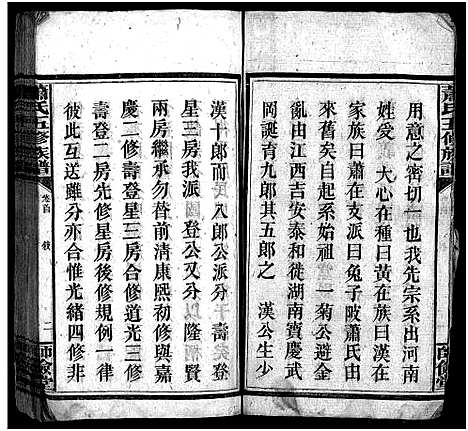 蕭氏五修族譜
用意之密切一也我先宗系出河南
姓受 大心在種曰黃在族曰漢在
家族曰蕭在支派曰兔子陂蕭氏由
來舊矣自起系始祖 一菊公避金
岡誕育九郎其五郎之 漢公生少
江西吉安泰和徙湖南寶慶武
漢十郎而 八郎公派分 壽
星三房我派 國登公又分以隆 賢
兩房繼承勿替前清康熙初修與嘉
慶二修壽登星三房合修道光三修
壽登二房先修星房後修規例一律
彼此互送雖分亦合惟光緒四修非
蕭氏五修族譜
卷首
二
師儉堂